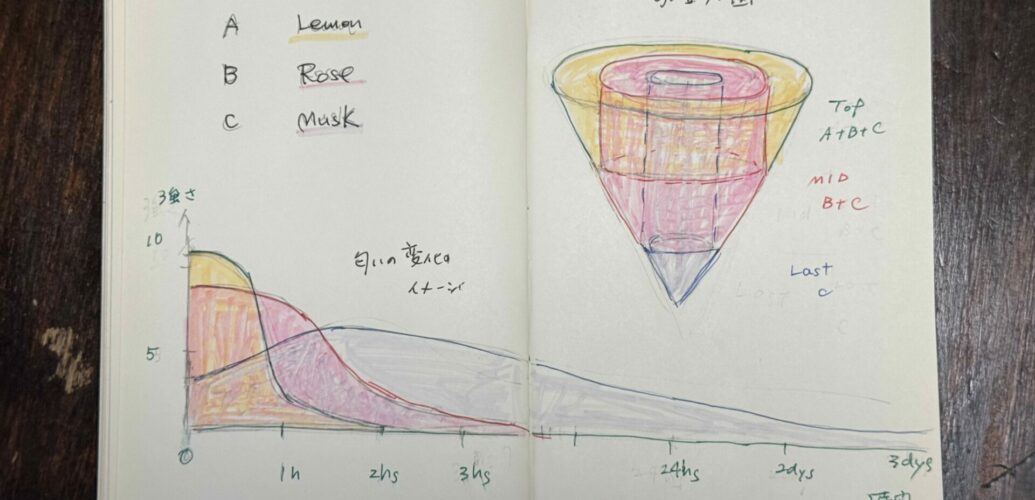 A Lemon
B Rose
C Musk
強さ
10
5
0
匂いの変化の
イメージ
1h
2hs
3hs
24hs
2dys
3dys
Top
A+B+C
MID
B+C
Last
C